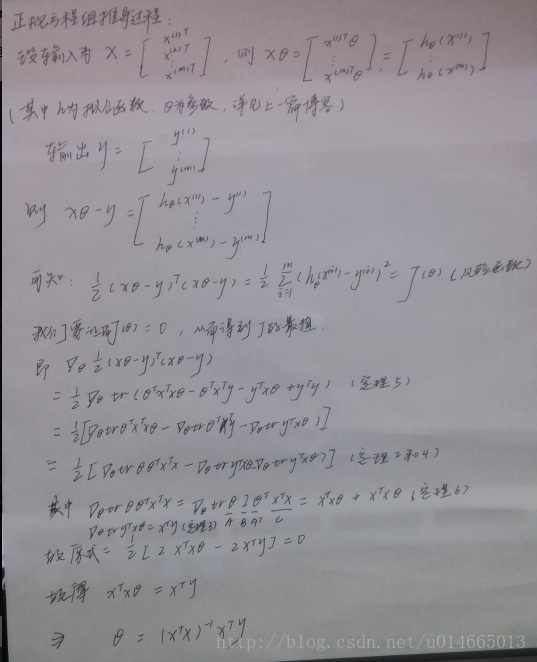 正规方程组推导过程：
设输入为 X = [x⁽¹⁾ᵀ x⁽²⁾ᵀ ⋮ x⁽ᵐ⁾ᵀ]，则 Xθ = [x⁽¹⁾ᵀθ ⋮ x⁽ᵐ⁾ᵀθ] = [hθ(x⁽¹⁾) ⋮ hθ(x⁽ᵐ⁾)]
(其中h为拟合函数、θ为参数，详见上一篇博客)
输出 y = [y⁽¹⁾ ⋮ y⁽ᵐ⁾]
则 Xθ-y = [hθ(x⁽¹⁾) - y⁽¹⁾ ⋮ hθ(x⁽ᵐ⁾) - y⁽ᵐ⁾]
可知： ½(Xθ-y)ᵀ(Xθ-y) = ½ Σᵢ₌₁ᵐ (hθ(x⁽ⁱ⁾) - y⁽ⁱ⁾)² = J(θ) (风险函数)
我们要让∇J(θ) = 0，从而得到J的最值.
即 ∇θ ½(Xθ-y)ᵀ(Xθ-y)
= ½∇θ tr(θᵀXᵀXθ - θᵀXᵀy - yᵀXθ + yᵀy) (定理5)
= ½[∇θtrθᵀXᵀXθ - ∇θtrθᵀXᵀy - ∇θtryᵀXθ)]
= ½[∇θtrθθᵀXᵀX - ∇θtryᵀXθ-∇θtryᵀXθ)] (定理2和4)
其中 ∇θtrθθᵀXᵀX = ∇θtrθIθᵀXᵀX = XᵀXθ + XᵀXθ (定理6)
∇θtryᵀXθ = Xᵀy (定理3) A B Aᵀ C
故原式 = ½[2XᵀXθ - 2Xᵀy] = 0
故得 XᵀXθ = Xᵀy
⇒ θ = (XᵀX)⁻¹Xᵀy
http://blog.csdn.net/u014665013